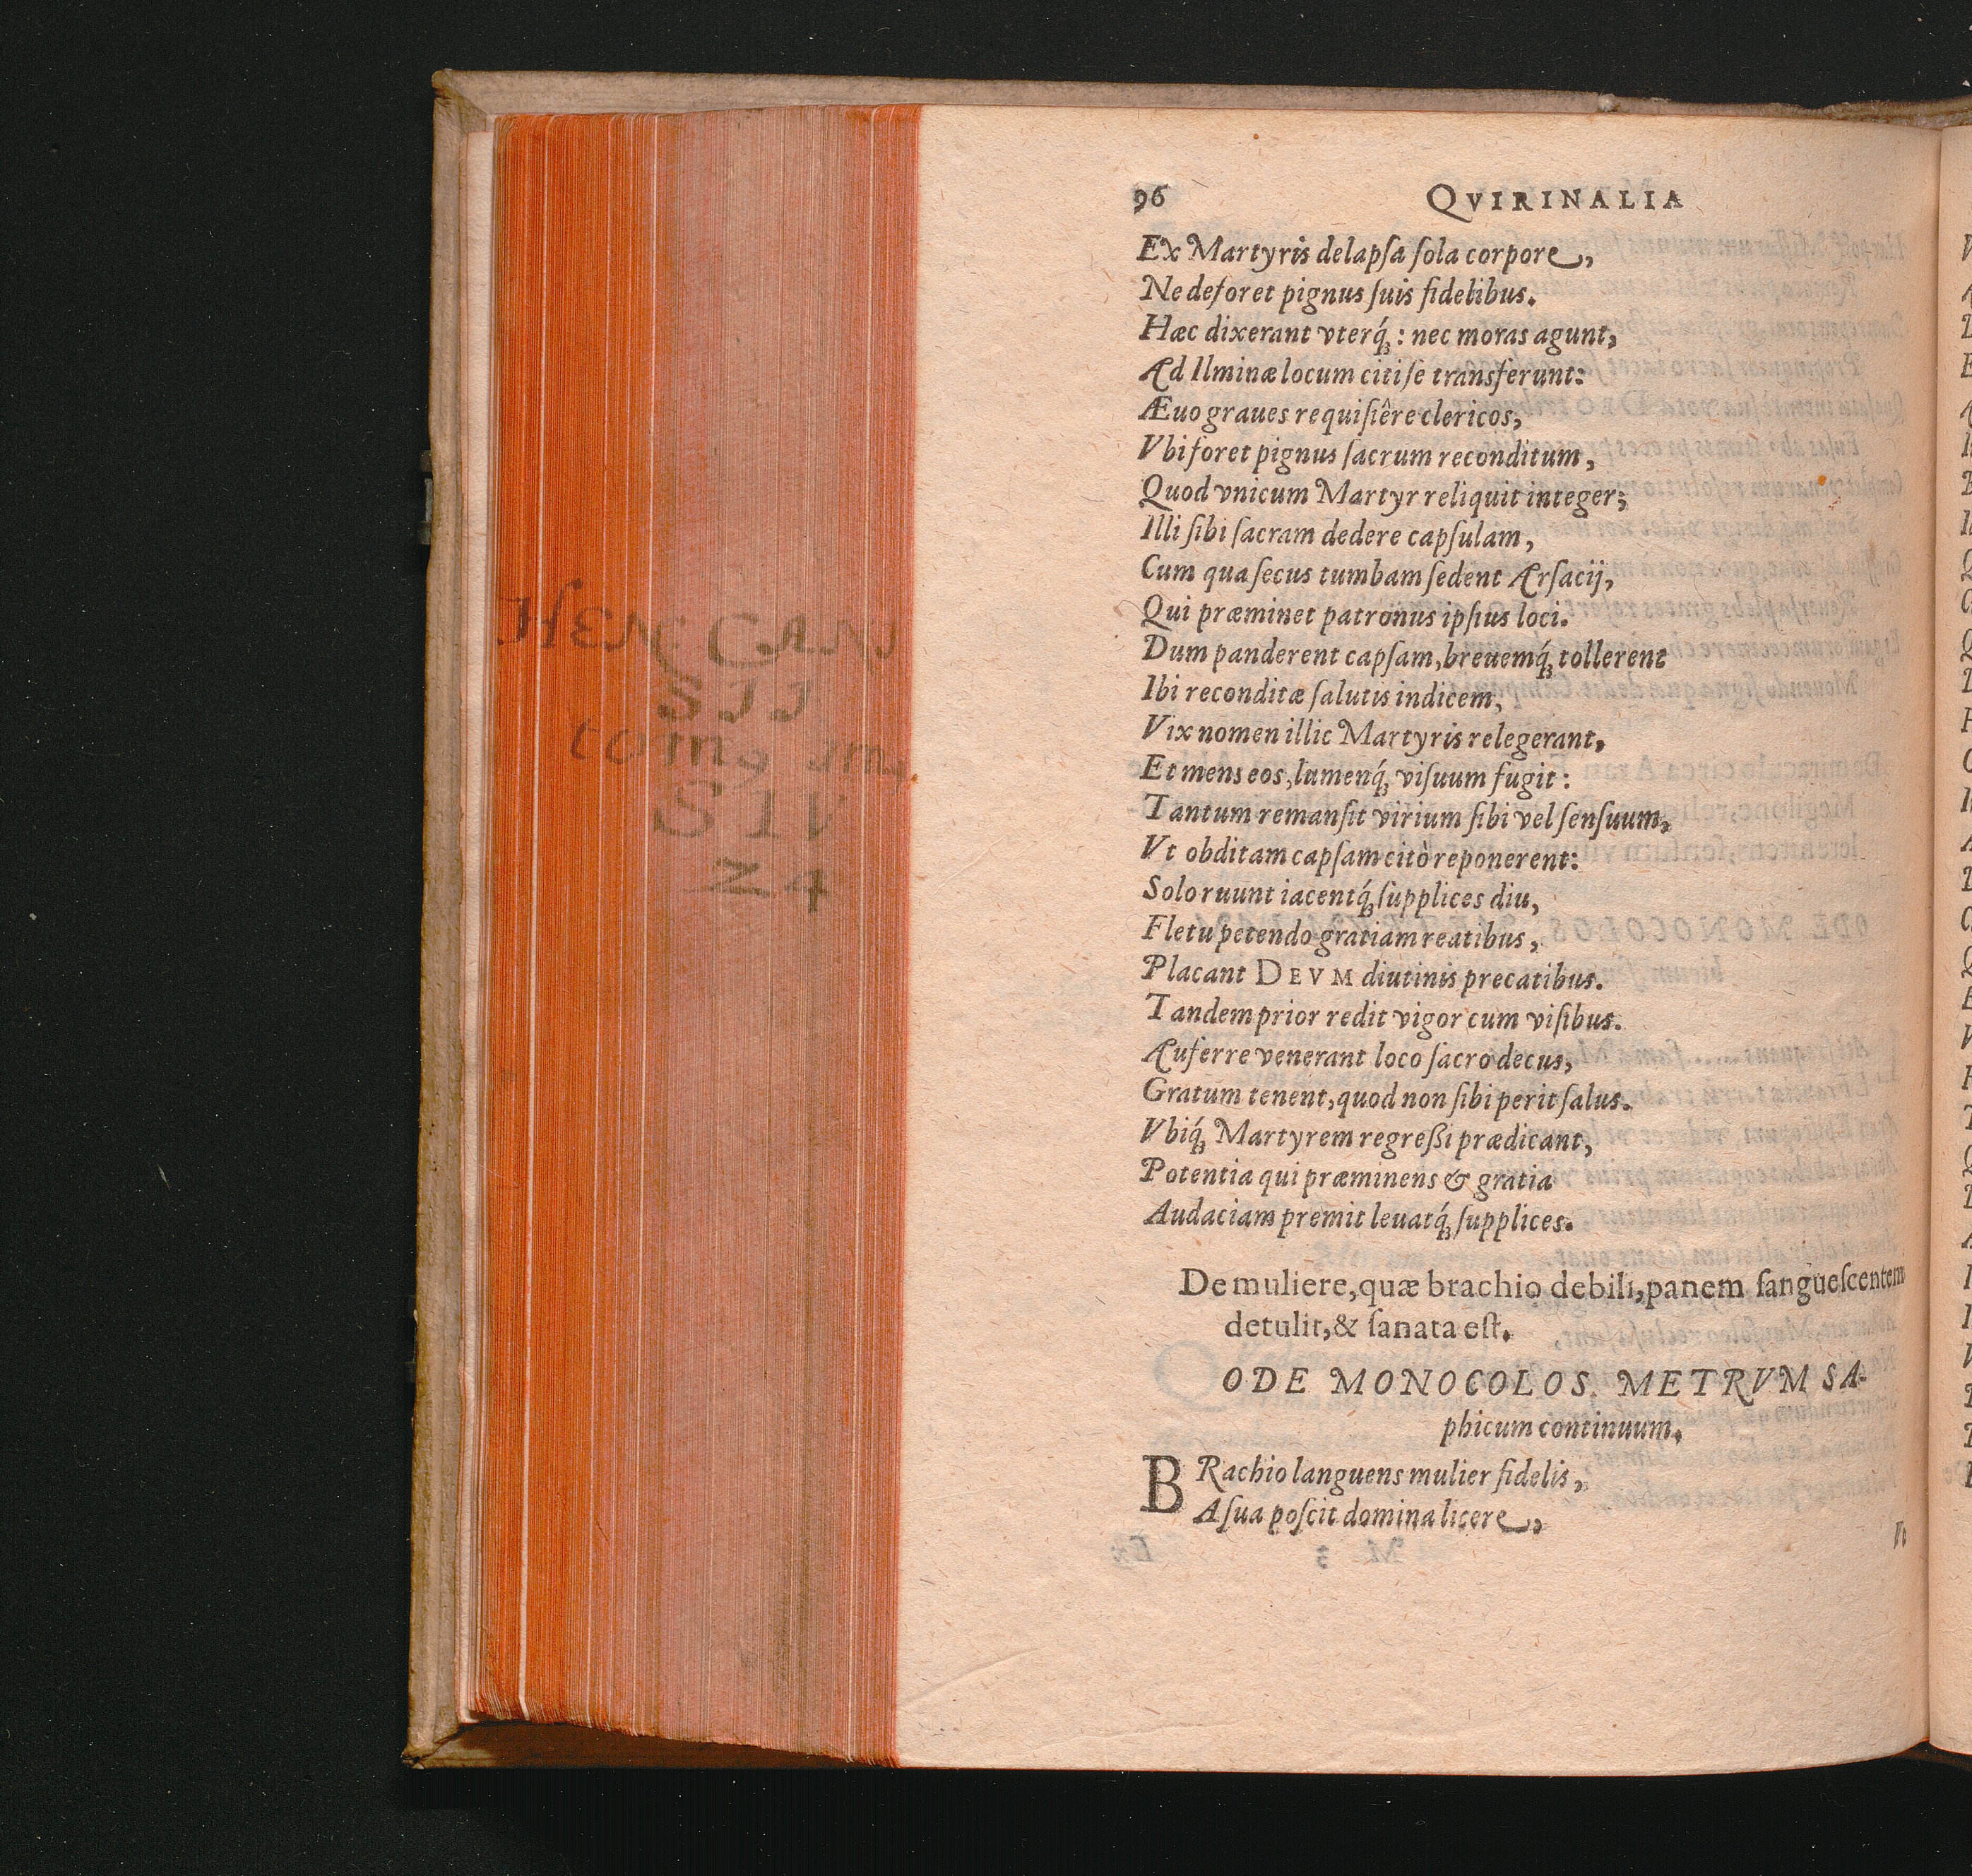 96 QVIRINALIA
Ex Martyris delapſa ſola corpore,
Ne deforet pignus ſuis fidelibus.
Hæc dixerant vterq́; : nec moras agunt,
Ad Ilminæ locum citi ſe transferunt:
Æuo graues requiſiêre clericos,
Vbi foret pignus ſacrum reconditum,
Quod vnicum Martyr reliquit integer;
Illi ſibi ſacram dedere capſulam,
Cum qua ſecus tumbam ſedent Arſacij,
Qui præminet patronus ipſius loci.
Dum panderent capſam, breuemq́; tollerent
Ibi reconditæ ſalutis indicem,
Vix nomen illic Martyris relegerant,
Et mens eos, lumenq́; viſuum fugit:
Tantum remanſit virium ſibi vel ſenſuum,
Vt obditam capſam citò reponerent:
Solo ruunt iacentq́; ſupplices diu,
Fletu petendo gratiam reatibus,
Placant DEVM diutinis precatibus.
Tandem prior redit vigor cum viſibus.
Auferre venerant loco ſacro decus,
Gratum tenent, quod non ſibi perit ſalus.
Vbiq́; Martyrem regreßi prædicant,
Potentia qui præminens & gratia
Audaciam premit leuatq́; ſupplices.
De muliere, quæ brachio debili, panem ſangueſcentem
detulit, & ſanata eſt.
ODE MONOCOLOS. METRVM SA-
phicum continuum.
BRachio languens mulier fidelis,
A ſua poſcit domina licere,
Vt